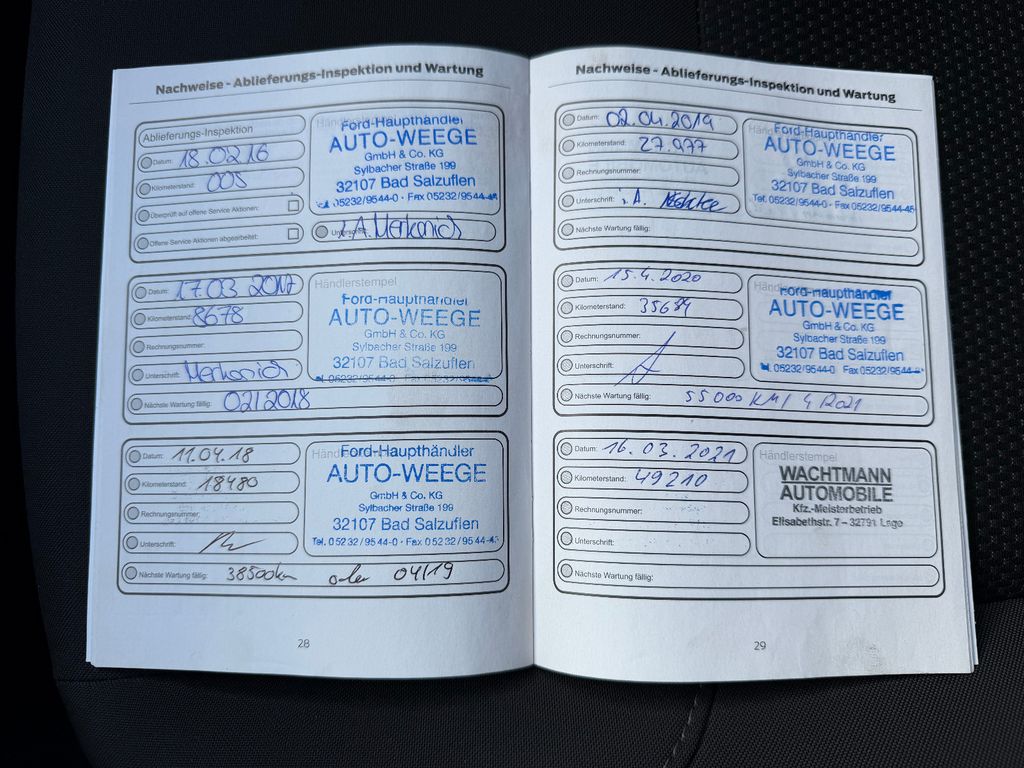 Nachweise - Ablieferungs-Inspektion und Wartung
Ablieferungs-Inspektion
Datum: 18.02.16
Kilometerstand: 005
Überprüft auf offene Service Aktionen:
Offene Service Aktionen abgearbeitet:
Ford-Haupthändler
AUTO-WEEGE
GmbH & Co. KG
Sylbacher Straße 199
32107 Bad Salzuflen
Tel. 05232/9544-0 · Fax 05232/9544-45
i.A. Merkonich
Datum: 17.03 2017
Kilometerstand: 8678
Rechnungsnummer:
Unterschrift: Merkonich
Nächste Wartung fällig: 02/2018
Händlerstempel
Ford-Haupthändler
AUTO-WEEGE
GmbH & Co. KG
Sylbacher Straße 199
32107 Bad Salzuflen
05232/9544-0 · Fax 05232/9544-
Datum: 11.04.18
Kilometerstand: 18480
Rechnungsnummer:
Unterschrift:
Nächste Wartung fällig: 38500km oder 04/19
Ford-Haupthändler
AUTO-WEEGE
GmbH & Co. KG
Sylbacher Straße 199
32107 Bad Salzuflen
Tel. 05232/9544-0 · Fax 05232/9544-45
28
Nachweise - Ablieferungs-Inspektion und Wartung
Datum: 02.04.2019
Kilometerstand: 27.977
Rechnungsnummer:
Unterschrift: i.A.
Nächste Wartung fällig:
Ford-Haupthändler
AUTO-WEEGE
GmbH & Co. KG
Sylbacher Straße 199
32107 Bad Salzuflen
Tel. 05232/9544-0 · Fax 05232/9544-45
Datum: 15.4.2020
Kilometerstand: 35684
Rechnungsnummer:
Unterschrift:
Nächste Wartung fällig: 55000 KM / 4/2021
Ford-Haupthändler
AUTO-WEEGE
GmbH & Co. KG
Sylbacher Straße 199
32107 Bad Salzuflen
05232/9544-0 Fax 05232/9544-
Datum: 16.03.2021
Kilometerstand: 49210
Rechnungsnummer:
Unterschrift:
Nächste Wartung fällig:
Händlerstempel
WACHTMANN
AUTOMOBILE
Kfz.-Meisterbetrieb
Elisabethstr. 7 - 32791 Lage
29